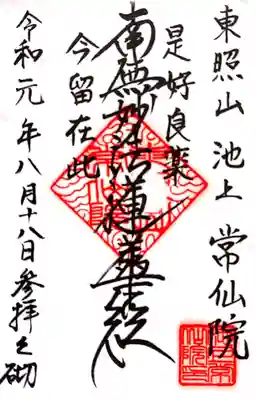 東照山 池上 常仙院
是好良薬
南無妙法蓮華経
今留在此
令和元年八月十八日参拝之砌